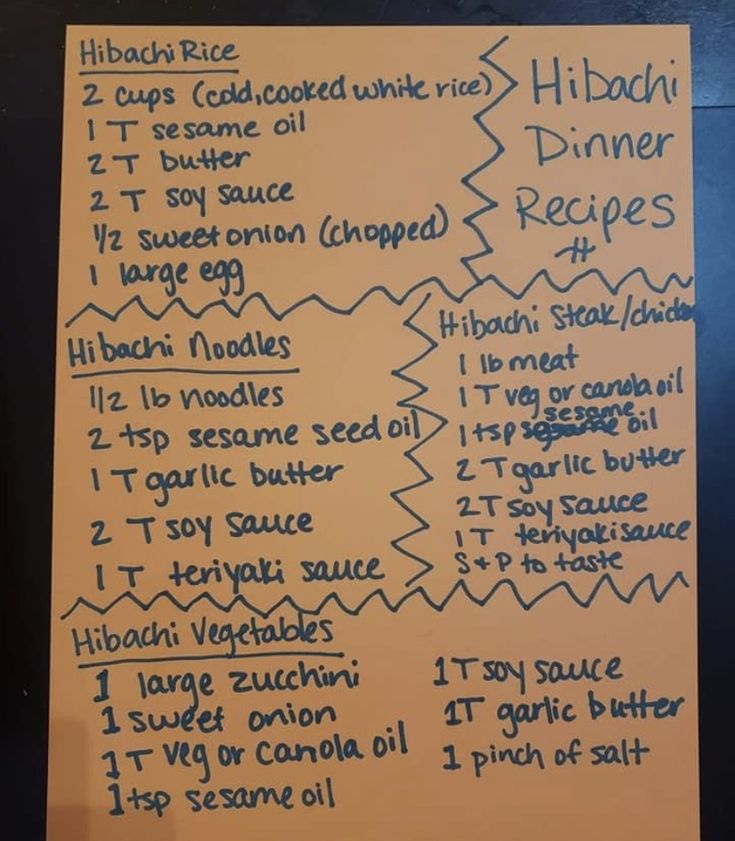 Hibachi Rice
2 cups (cold, cooked white rice)
1 T sesame oil
2 T butter
2 T soy sauce
1/2 sweet onion (chopped)
1 large egg
Hibachi
Dinner
Recipes
#
Hibachi Noodles
1/2 lb noodles
2 tsp sesame seed oil
1 T garlic butter
2 T soy sauce
1 T teriyaki sauce
Hibachi Steak/chicken
1 lb meat
1 T veg or canola oil
1 tsp sesame oil
2 T garlic butter
2 T soy sauce
1 T teriyaki sauce
S + P to taste
Hibachi Vegetables
1 large zucchini
1 sweet onion
1 T veg or canola oil
1 tsp sesame oil
1 T soy sauce
1T garlic butter
1 pinch of salt